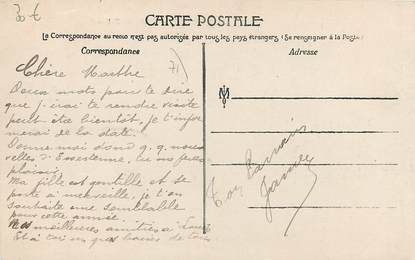 30 €
CARTE POSTALE
La Correspondance au recto n'est pas autorisée par tous les pays étrangers (Se renseigner à la Poste)
Correspondance
Adresse
71
Chère Marthe
Deux mots pour te dire
que j'irai te rendre visite
peut être bientôt, je t'infor
merai de la date.
Donne moi donc q.q. nou
velles d'
plaisir.
Ma fille est gentille et se
porte à merveille, je t'en
souhaite une semblable
pour cette année.
Mes meilleures amitiés à Louis
Et à toi un gros baiser de ton
Ton Parrain